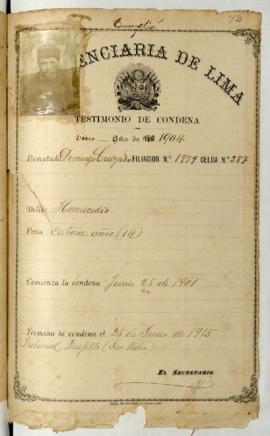 Cumplió
72
PENCIARIA DE LIMA
TESTIMONIO DE CONDENA
Vino Año de 1904
Rematado Domingo Cruzado FILIACION N.º 1939 CELDA N.º 287
Delito Homicidio
Pena Catorce años (14)
Comienza la condena Junio 25 de 1901
Termina la condena el 25 de Junio de 1915
Tribunal Trujillo (San Pedro)
EL SECRETARIO